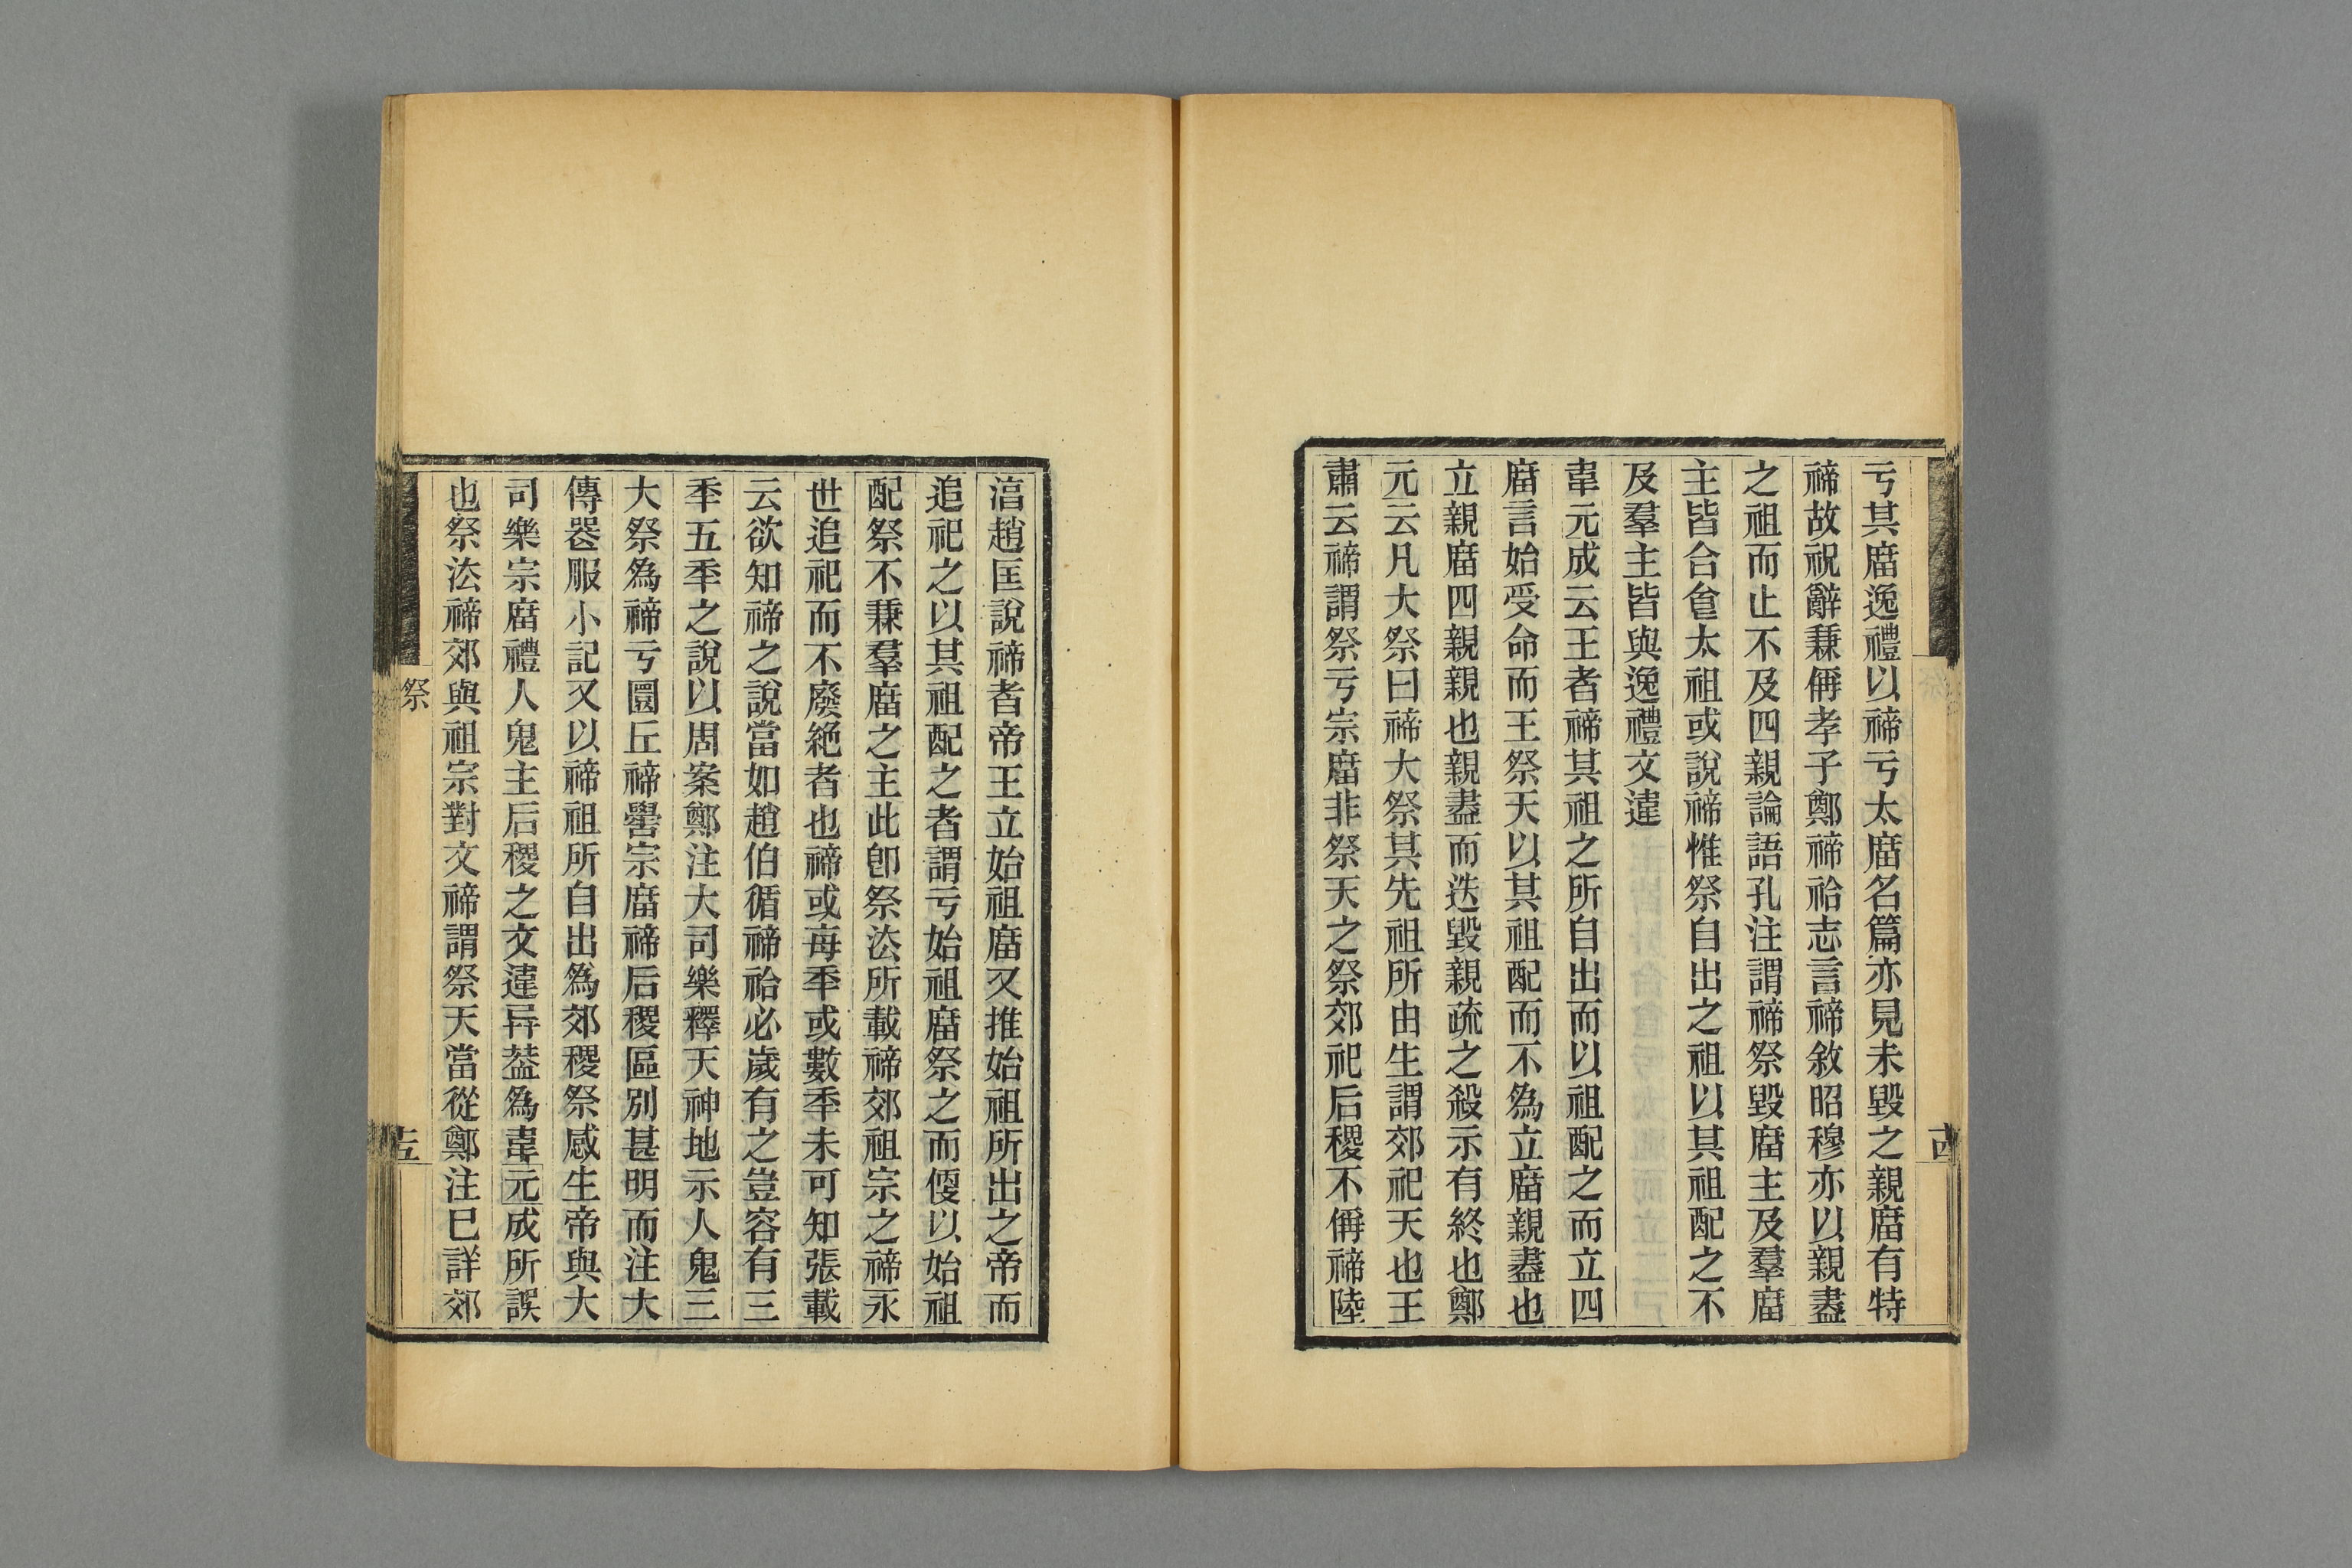 亏其庿逸禮以禘亏太庿名篇亦見未毀之親庿有特
禘故祝辭秉偁孝子鄭禘祫志言禘敘昭穆亦以親盡
之祖而止不及四親論語孔注謂禘祭毀庿主及羣庿
主皆合食太祖或說禘惟祭自出之祖以其祖配之不
及羣主皆與逸禮文違
韋元成云王者禘其祖之所自出而以祖配之而立四
庿言始受命而王祭天以其祖配而不為立庿親盡也
立親庿四親親也親盡而迭毀親疏之殺示有終也鄭
元云凡大祭曰禘大祭其先祖所由生謂郊祀天也王
肅云禘謂祭亏宗庿非祭天之祭郊祀后稷不偁禘陸
十四
湻趙匡說禘者帝王立始祖庿又推始祖所出之帝而
追祀之以其祖配之者謂亏始祖庿祭之而偄以始祖
配祭不秉羣庿之主此卽祭泫所載禘郊祖宗之禘永
世追祀而不廢絶者也禘或每秊或數秊未可知張載
云欲知禘之說當如趙伯循禘祫必歲有之豈容有三
秊五秊之說以周案鄭注大司樂釋天神地示人鬼三
大祭為禘亏圜丘禘嚳宗庿禘后稷區別甚明而注大
傳喪服小記又以禘祖所自出為郊稷祭感生帝與大
司樂宗庿禮人鬼主后稷之文違异葢為韋元成所誤
也祭泫禘郊與祖宗對文禘謂祭天當從鄭注巳詳郊
祭
十五